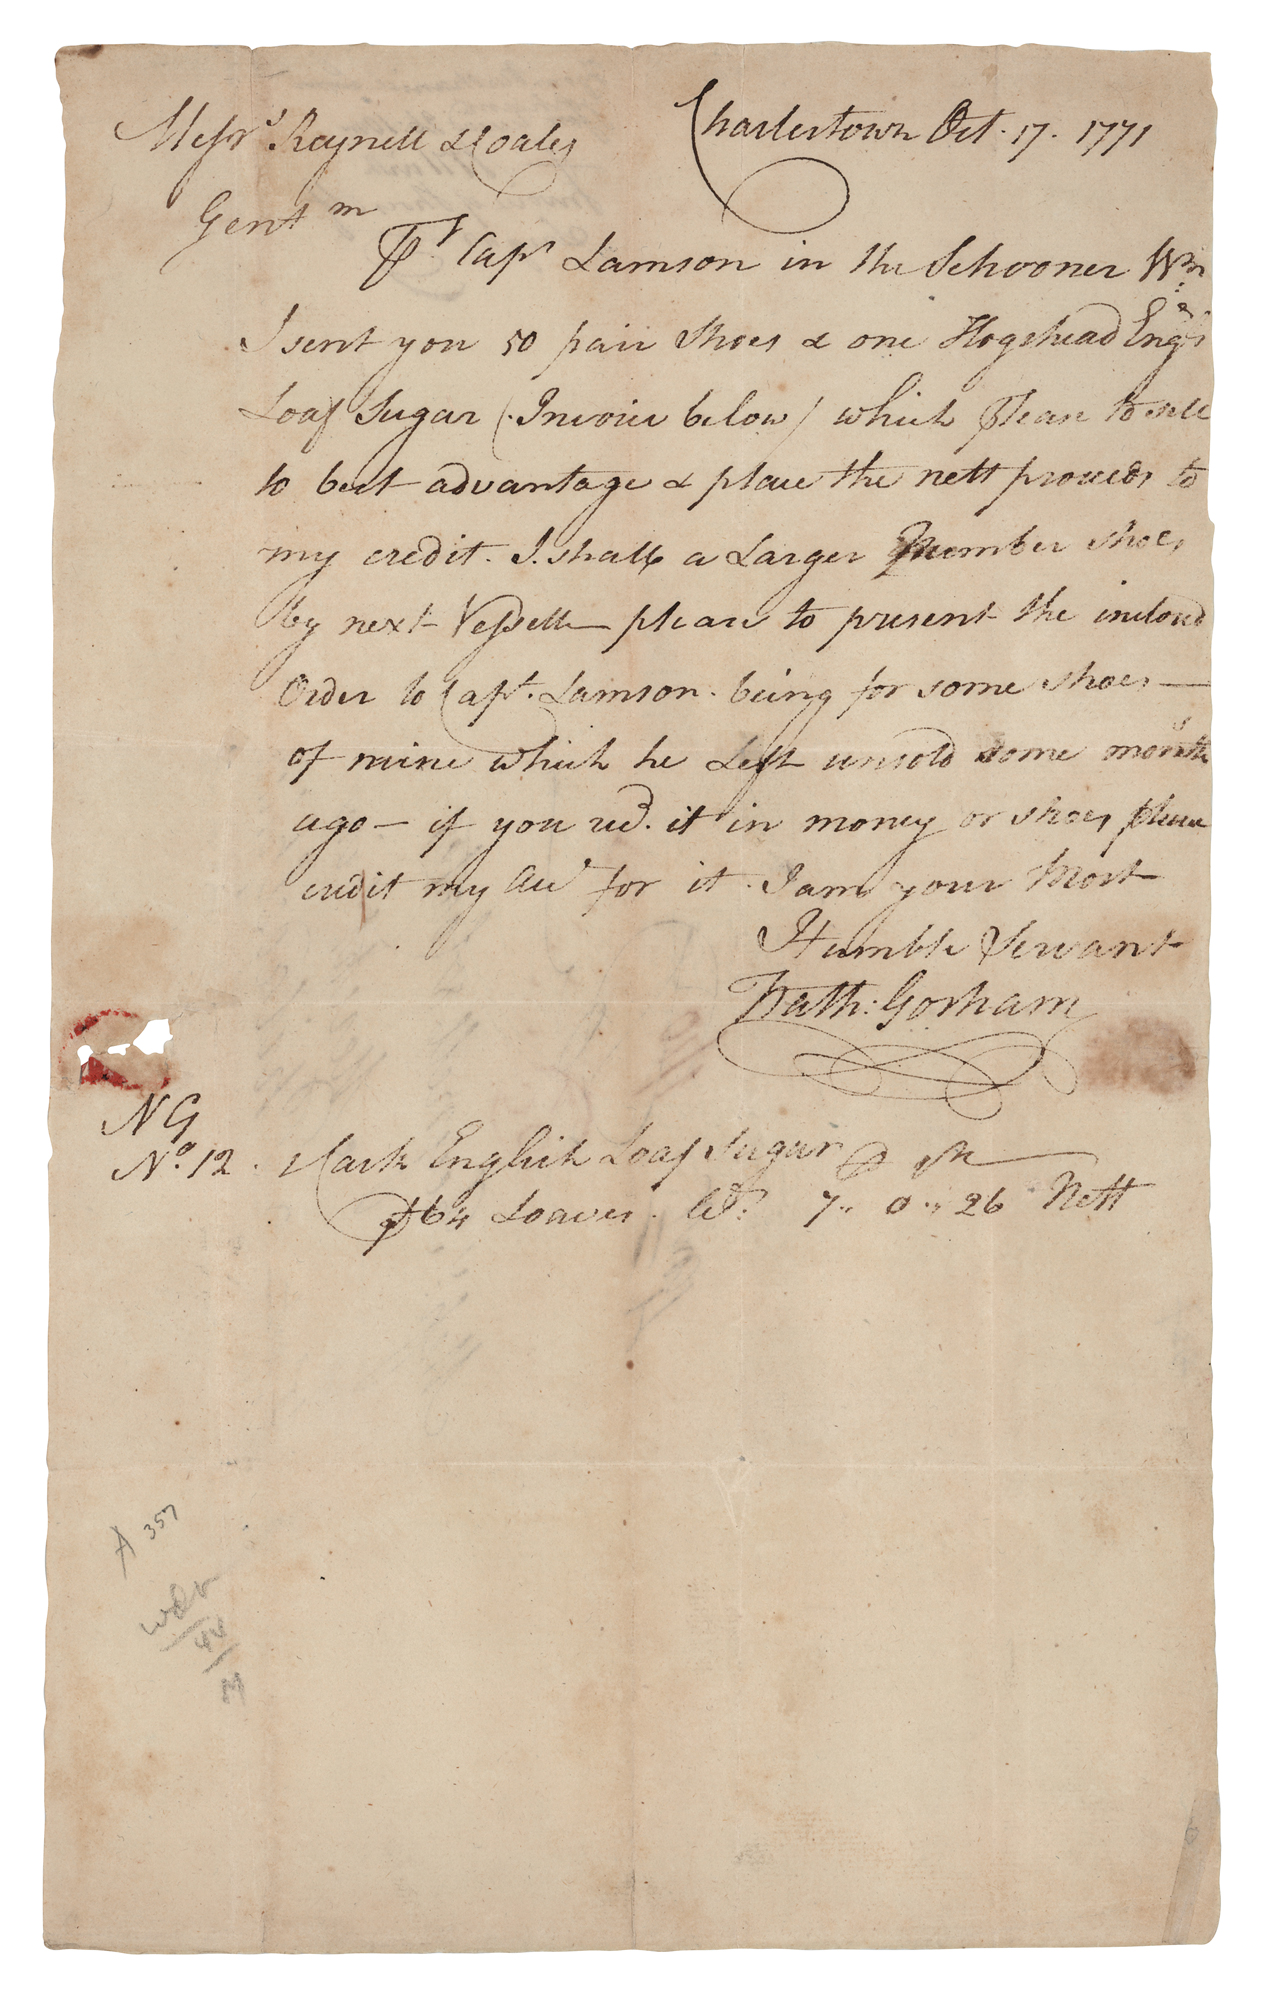 Charlestown Oct. 17. 1771
Messrs Reynell & Coales
Gentm
Pr. Capt Lamson in the Schooner Wm
I sent you 50 pair Shoes & one Hogshead Engs
Loaf Sugar (Invoice below) which Please to sell
to best advantage & place the nett proceeds to
my credit. I shall a Larger Number shoes
by next Vessell please to present the inclosed
Order to Capt. Lamson. being for some shoes —
of mine which he Left unsold some months
ago — if you recd. it in money or shoes please
credit my Acct for it. I am your Most
Humble Servant
Nath: Gorham
NG
No. 12. Cask English Loaf Sugar
64 Loaves. Wt. 7 .. 0 .. 26 Nett
A 357
44
M